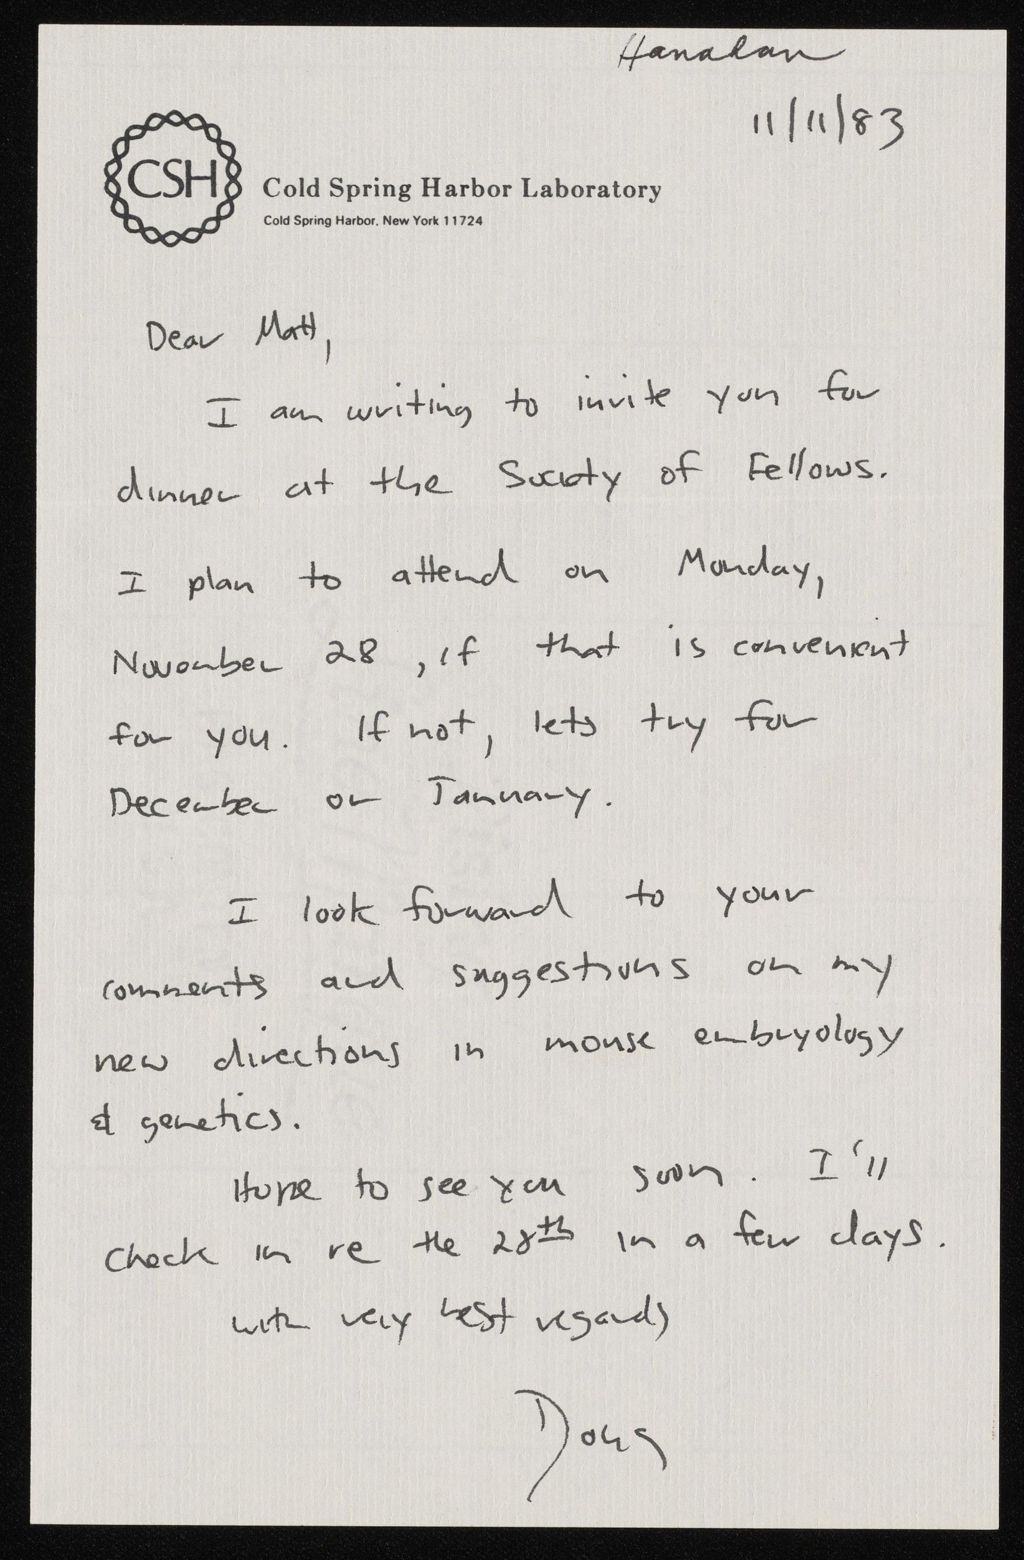 Hanahan
11/11/83
CSH
Cold Spring Harbor Laboratory
Cold Spring Harbor, New York 11724
Dear Matt,
I am writing to invite you for
dinner at the Society of Fellows.
I plan to attend on Monday,
November 28, if that is convenient
for you. If not, lets try for
December or January.
I look forward to your
comments and suggestions on my
new directions in mouse embryology
& genetics.
Hope to see you soon. I'll
check in re the 28th in a few days.
with very best regards
Doug